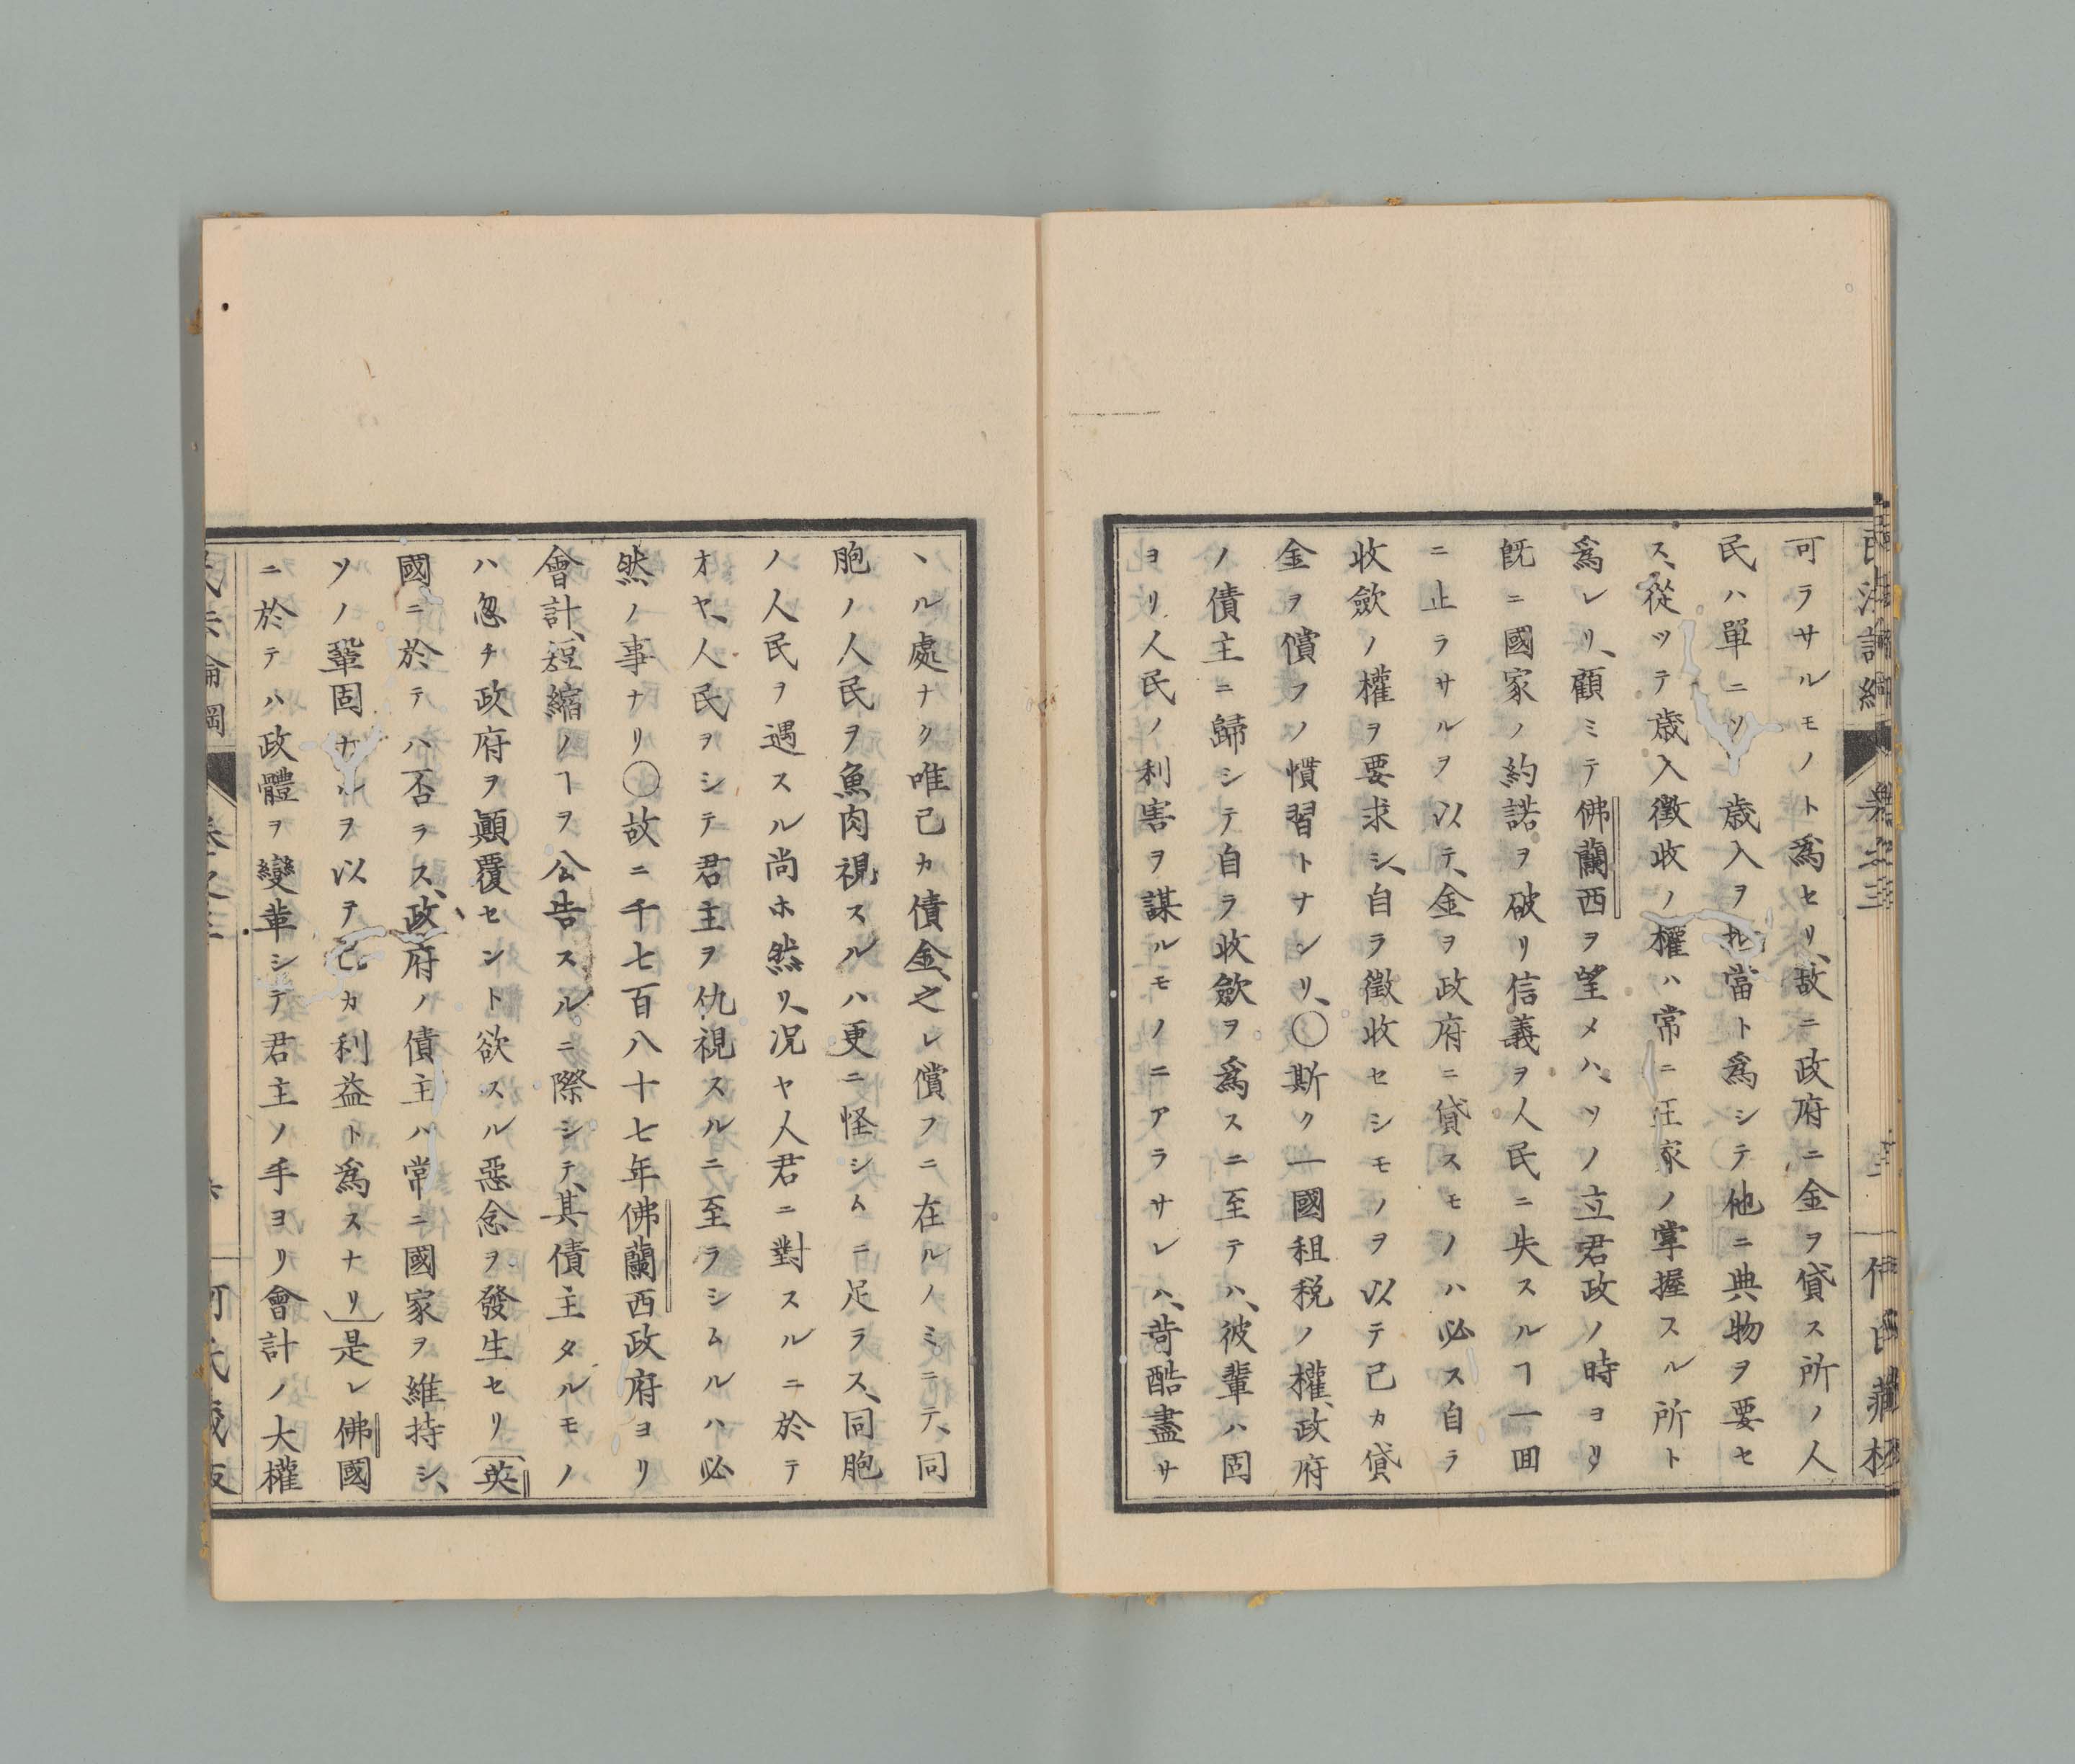 可ラサルモノト爲セリ、故ニ政府ニ金ヲ貸ス所ノ人
民ハ單ニソ歳入ヲ抵當ト爲シテ他ニ典物ヲ要セ
ス、從ツテ歳入徴收ノ權ハ常ニ王家ノ掌握スル所ト
爲レリ、顧ミテ佛蘭西ヲ望メハ、ソノ立君政ノ時ヨリ
旣ニ國家ノ約諾ヲ破リ信義ヲ人民ニ失スルヿ一囬
ニ止ラサルヲ以テ、金ヲ政府ニ貸スモノハ必ス自ラ
收斂ノ權ヲ要求シ、自ラ徴收セシモノヲ以テ己カ貸
金ヲ償フノ慣習トナシリ、〇斯ク一國租税ノ權、政府
ノ債主ニ歸シテ自ラ收斂ヲ爲スニ至テハ、彼輩ハ固
ヨリ人民ノ利害ヲ謀ルモノニアラサレハ、苛酷盡サ
ヽル處ナク唯己カ債金、之レ償フニ在ルノミニテ、同
胞ノ人民ヲ魚肉視スルハ更ニ怪シムニ足ラス、同胞
ノ人民ヲ遇スル尚ホ然リ、况ヤ人君ニ對スルニ於テ
オヤ、人民ヲシテ君主ヲ仇視スルニ至ラシムルハ必
然ノ事ナリ〇故ニ千七百八十七年佛蘭西政府ヨリ
會計、短縮ノヿヲ公告スルニ際シテ、其債主タルモノ
ハ忽チ政府ヲ顚覆セント欲スル惡念ヲ發生セリ（英
國ニ於テハ否ラス、政府ノ債主ハ常ニ國家ヲ維持シ、
ソノ鞏固ナルヲ以テ己カ利益ト爲スナリ）是レ佛國
ニ於テハ政體ヲ變革シテ君主ノ手ヨリ會計ノ大權